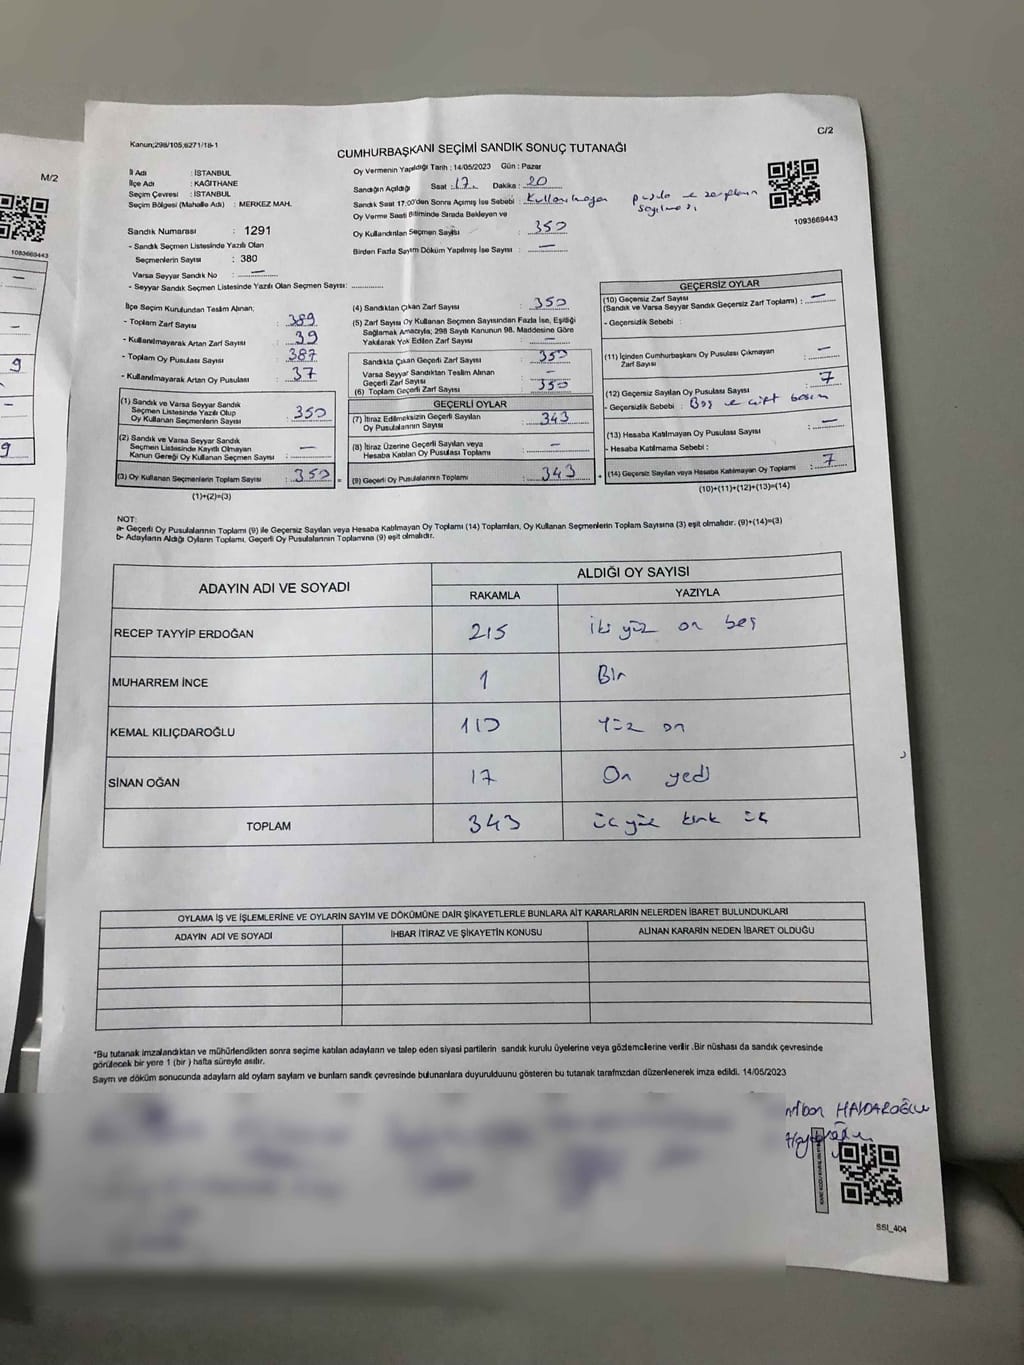 C/2
Kanun;298/105,6271/18-1
CUMHURBAŞKANI SEÇİMİ SANDIK SONUÇ TUTANAĞI
M/2
1093669443
İl Adı : İSTANBUL
İlçe Adı : KAĞITHANE
Seçim Çevresi : İSTANBUL
Seçim Bölgesi (Mahalle Adı) : MERKEZ MAH.
Sandık Numarası : 1291
- Sandık Seçmen Listesinde Yazılı Olan
Seçmenlerin Sayısı : 380
Varsa Seyyar Sandık No : —
- Seyyar Sandık Seçmen Listesinde Yazılı Olan Seçmen Sayısı:
Oy Vermenin Yapıldığı Tarih : 14/05/2023 Gün : Pazar
Sandığın Açıldığı Saat : 17. Dakika : 20
Sandık Saat 17:00'den Sonra Açılmış İse Sebebi : Kullanılmayan pusula ve zarfların sayılması
Oy Verme Saati Bitiminde Sırada Bekleyen ve
Oy Kullandırılan Seçmen Sayısı : 350
Birden Fazla Sayım Döküm Yapılmış İse Sayısı : —
1093669443
İlçe Seçim Kurulundan Teslim Alınan;
- Toplam Zarf Sayısı : 389
- Kullanılmayarak Artan Zarf Sayısı : 39
- Toplam Oy Pusulası Sayısı : 387
- Kullanılmayarak Artan Oy Pusulası : 37
(1) Sandık ve Varsa Seyyar Sandık
Seçmen Listesinde Yazılı Olup
Oy Kullanan Seçmenlerin Sayısı : 350
(2) Sandık ve Varsa Seyyar Sandık
Seçmen Listesinde Kayıtlı Olmayan
Kanun Gereği Oy Kullanan Seçmen Sayısı : —
(3) Oy Kullanan Seçmenlerin Toplam Sayısı : 350
(1)+(2)=(3)
(4) Sandıktan Çıkan Zarf Sayısı : 350
(5) Zarf Sayısı Oy Kullanan Seçmen Sayısından Fazla İse, Eşitliği
Sağlamak Amacıyla; 298 Sayılı Kanunun 98. Maddesine Göre
Yakılarak Yok Edilen Zarf Sayısı : —
Sandıkta Çıkan Geçerli Zarf Sayısı : 350
Varsa Seyyar Sandıktan Teslim Alınan
Geçerli Zarf Sayısı : —
(6) Toplam Geçerli Zarf Sayısı : 350
GEÇERLİ OYLAR
(7) İtiraz Edilmeksizin Geçerli Sayılan
Oy Pusulalarının Sayısı : 343
(8) İtiraz Üzerine Geçerli Sayılan veya
Hesaba Katılan Oy Pusulası Toplamı : —
(9) Geçerli Oy Pusulalarının Toplamı : 343
GEÇERSİZ OYLAR
(10) Geçersiz Zarf Sayısı
(Sandık ve Varsa Seyyar Sandık Geçersiz Zarf Toplamı) : —
- Geçersizlik Sebebi :
(11) İçinden Cumhurbaşkanı Oy Pusulası Çıkmayan
Zarf Sayısı : —
(12) Geçersiz Sayılan Oy Pusulası Sayısı : 7
- Geçersizlik Sebebi : Boş ve çift basım
(13) Hesaba Katılmayan Oy Pusulası Sayısı : —
- Hesaba Katılmama Sebebi :
(14) Geçersiz Sayılan veya Hesaba Katılmayan Oy Toplamı : 7
(10)+(11)+(12)+(13)=(14)
NOT:
a- Geçerli Oy Pusulalarının Toplamı (9) ile Geçersiz Sayılan veya Hesaba Katılmayan Oy Toplamı (14) Toplamları, Oy Kullanan Seçmenlerin Toplam Sayısına (3) eşit olmalıdır. (9)+(14)=(3)
b- Adayların Aldığı Oyların Toplamı, Geçerli Oy Pusulalarının Toplamına (9) eşit olmalıdır.
ADAYIN ADI VE SOYADI
ALDIĞI OY SAYISI
RAKAMLA YAZIYLA
RECEP TAYYİP ERDOĞAN 215 iki yüz on beş
MUHARREM İNCE 1 Bir
KEMAL KILIÇDAROĞLU 110 Yüz on
SİNAN OĞAN 17 On yedi
TOPLAM 343 üç yüz kırk üç
OYLAMA İŞ VE İŞLEMLERİNE VE OYLARIN SAYIM VE DÖKÜMÜNE DAİR ŞİKAYETLERLE BUNLARA AİT KARARLARIN NELERDEN İBARET BULUNDUKLARI
ADAYIN ADI VE SOYADI İHBAR İTİRAZ VE ŞİKAYETİN KONUSU ALINAN KARARIN NEDEN İBARET OLDUĞU
*Bu tutanak imzalandıktan ve mühürlendikten sonra seçime katılan adayların ve talep eden siyasi partilerin sandık kurulu üyelerine veya gözlemcilerine verilir .Bir nüshası da sandık çevresinde
görülecek bir yere 1 (bir ) hafta süreyle asılır.
Sayım ve döküm sonucunda adayların ald oyların sayılam ve bunların sandk çevresinde bulunanlara duyurulduunu gösteren bu tutanak tarafmızdan düzenlenerek imza edildi. 14/05/2023
HAYDAROĞLU
SSI_404